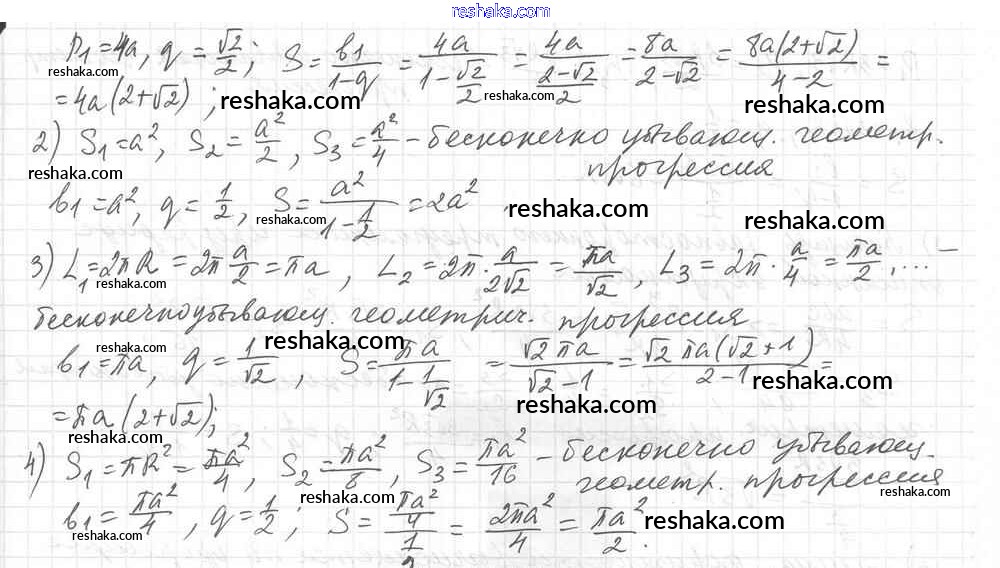 reshaka.com
P₁ = 4a, q = √2/2; S = b₁/(1-q) = 4a/(1-√2/2) = 4a/((2-√2)/2) = 8a/(2-√2) = 8a(2+√2)/(4-2) =
reshaka.com reshaka.com
= 4a(2+√2); reshaka.com reshaka.com
2) S₁ = a², S₂ = a²/2, S₃ = a²/4 - бесконечно убывающ. геометр.
reshaka.com прогрессия
b₁ = a², q = 1/2, S = a²/(1-1/2) = 2a²
reshaka.com reshaka.com reshaka.com
3) L₁ = 2πR = 2π a/2 = πa, L₂ = 2π · a/(2√2) = πa/√2, L₃ = 2π · a/4 = πa/2, ... –
reshaka.com reshaka.com reshaka.com
бесконечно убывающ. геометрич. прогрессия
reshaka.com reshaka.com
b₁ = πa, q = 1/√2, S = πa/(1-1/√2) = √2πa/(√2-1) = √2πa(√2+1)/(2-1) =
reshaka.com reshaka.com reshaka.com reshaka.com
= πa(2+√2);
reshaka.com
4) S₁ = πR² = πa²/4, S₂ = πa²/8, S₃ = πa²/16 - бесконечно убывающ.
reshaka.com геометр. прогрессия
reshaka.com reshaka.com
b₁ = πa²/4, q = 1/2; S = (πa²/4)/(1/2) = 2πa²/4 = πa²/2.
reshaka.com reshaka.com reshaka.com